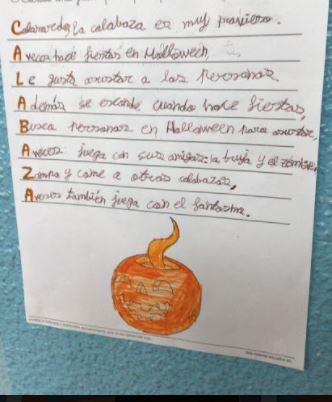 Calamardo, la calabaza es muy
A veces hace fiestas en Halloween,
Le gusta asustar a las personas.
Además se esconde cuando hace fiestas,
Busca personas en Halloween para asustar,
A veces juega con sus amigos: la bruja y el zombie,
Zampa y come a otras calabazas,
A veces también juega con el fantasma.